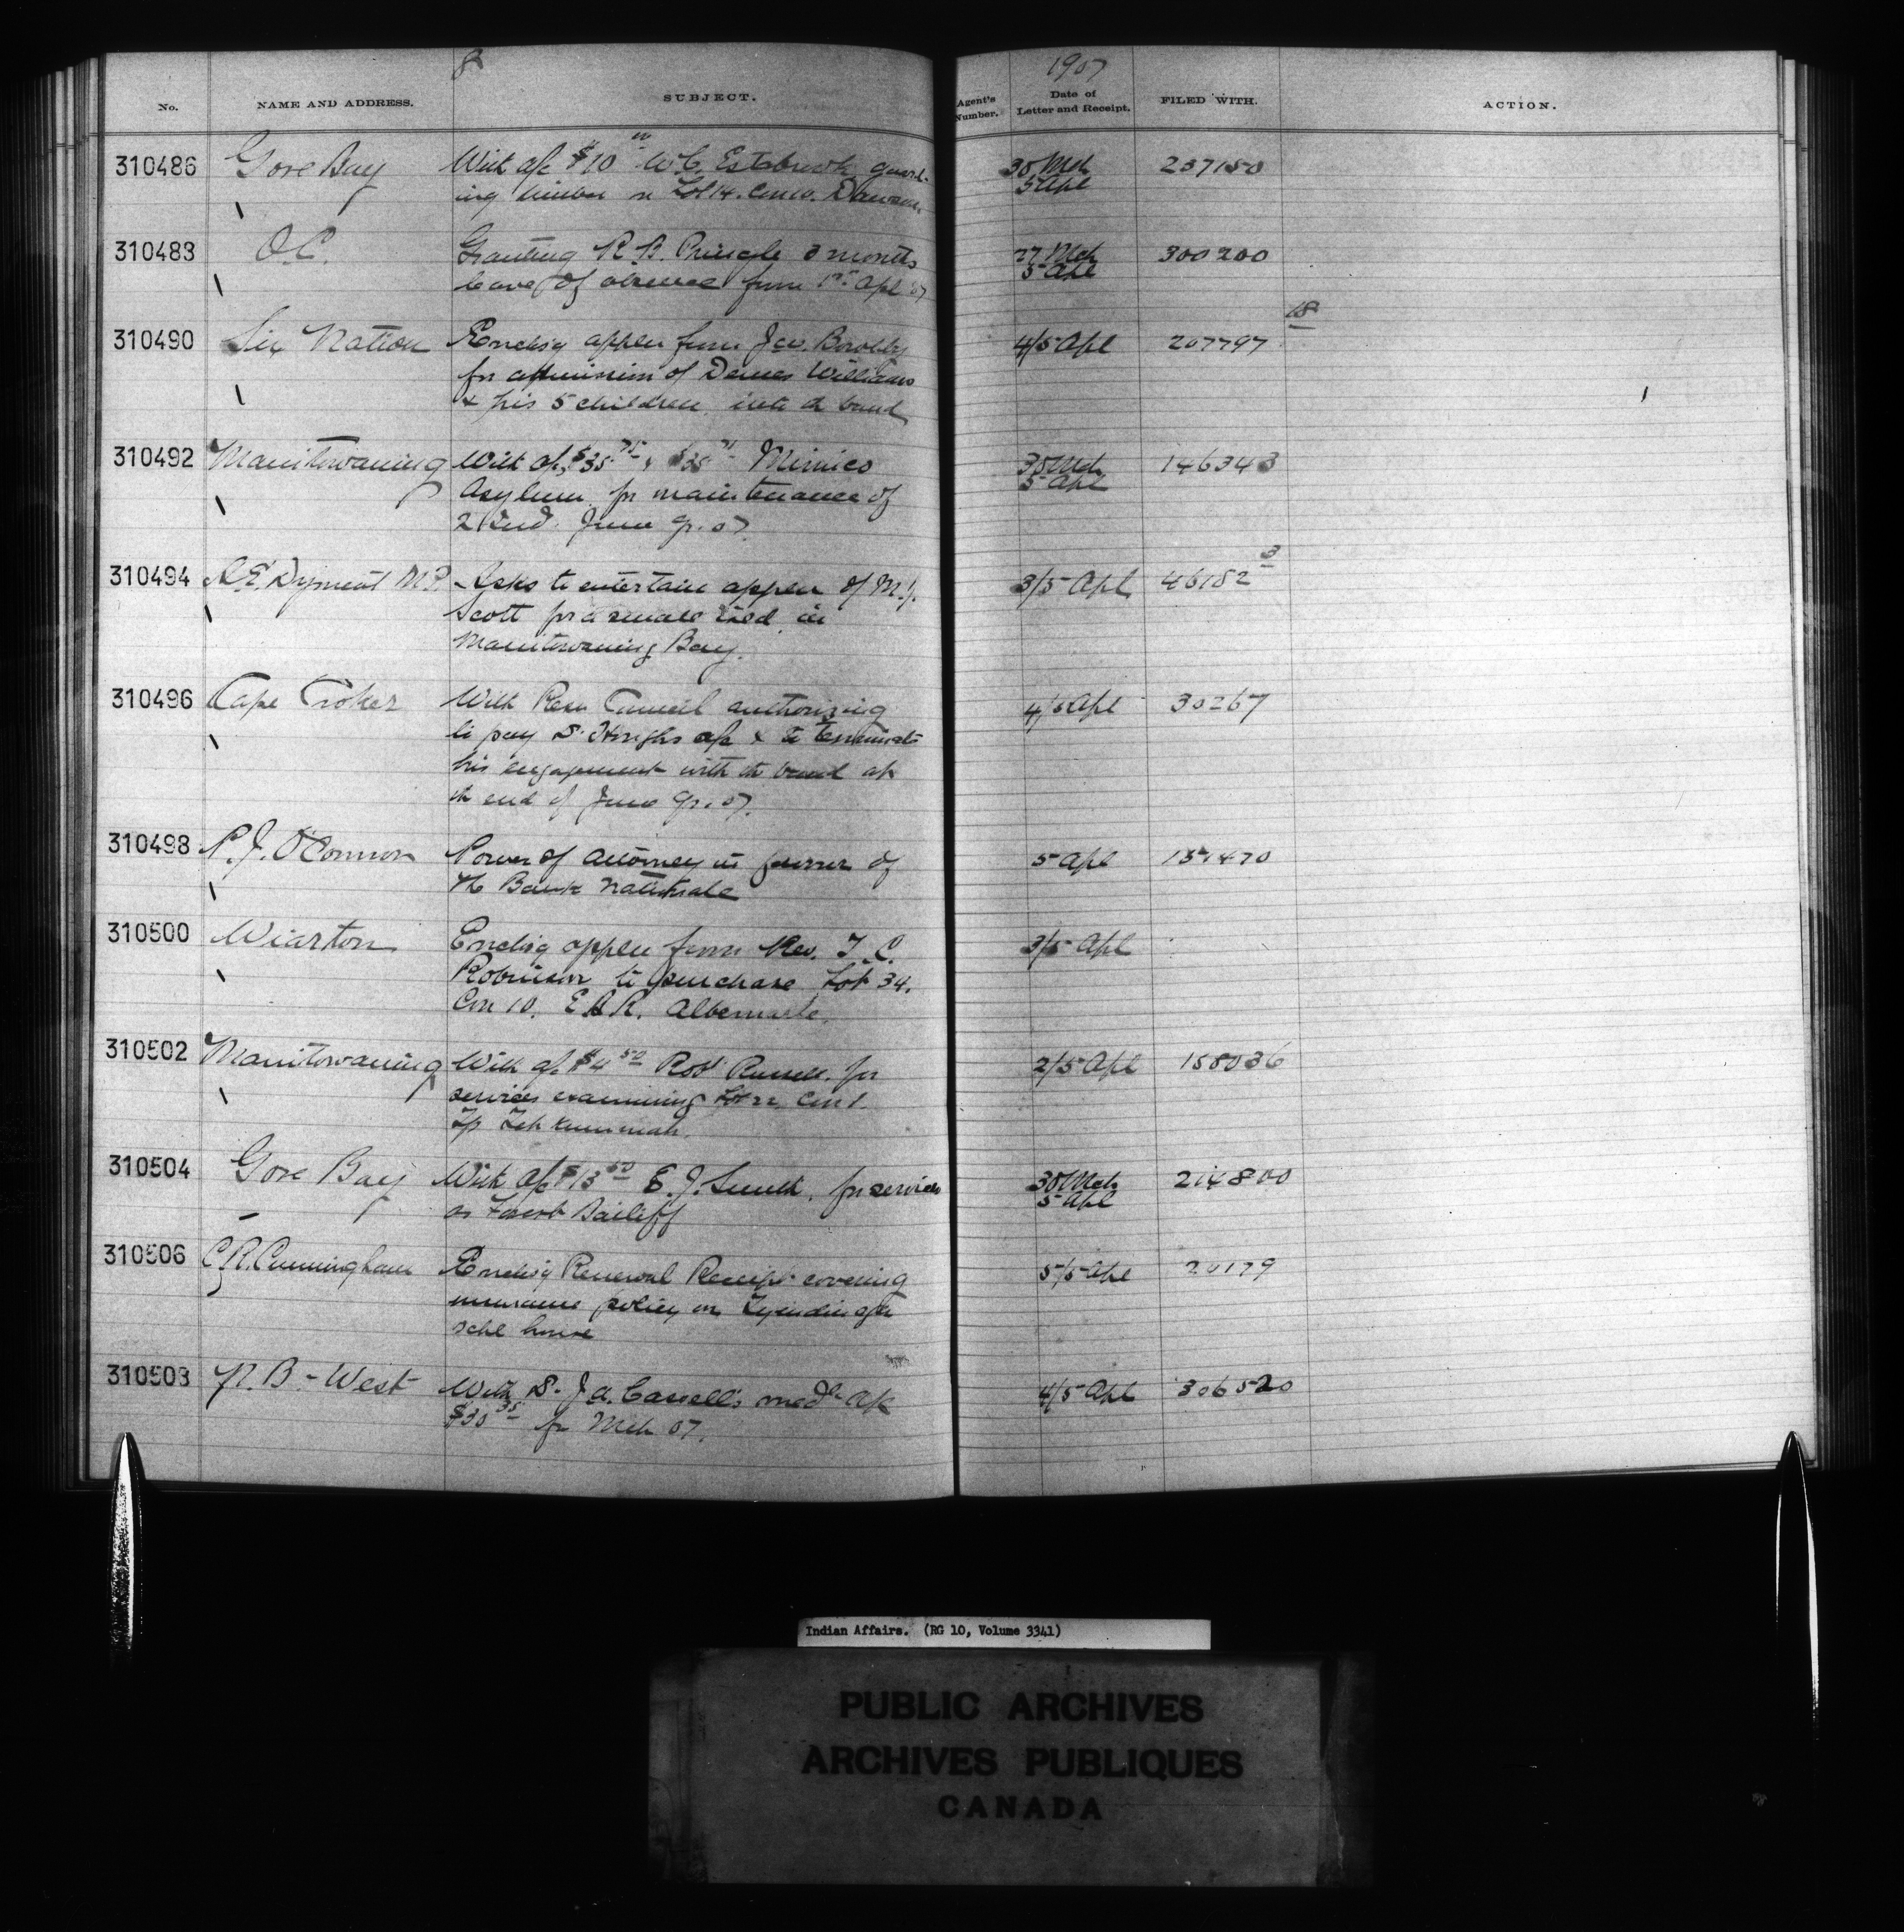 8
1907
No. NAME AND ADDRESS. SUBJECT. Agent's Number. Date of Letter and Receipt. FILED WITH. ACTION.
310486 Gore Bay With a/c $10 00 W.C. Estabrook guard- 30 Mch 237150
ing timber on Lot 14. Con 10. Dawson. 5 Apl
310483 O.C. Granting R.B. Pringle 3 months 27 Mch 300200
leave of absence from 1st Apl 07 5 Apl
18
310490 Six Nation Encl'sg applen from Jas. Bowlby 4/5 Apl 207797
for admission of Williams
& his 5 children into the band
310492 Manitowaning With a/c $35 75 & $35 Mimico 30 Mch 146343
Asylum for maintenance of 5 Apl
2 Ind. June qr. 07
3
310494 A.E. Dyment M.P. Asks to entertain applen of M.J. 3/5 Apl 46182
Scott for a small isld in
Manitowaning Bay.
310496 Cape Croker With Resn Council authorizing 4/5 Apl 30267
to pay Dr. Hough's a/c & to terminate
his engagement with the band at
the end of June qr. 07.
310498 P.J. O'Connor Power of Attorney in favour of 5 Apl 157470
the Bank Nationale
310500 Wiarton Encl'sg applen from Rev. T.C. 3/5 Apl
Robinson to purchase Lot 34.
Con 10. E.B.R. Albemarle.
310502 Manitowaning With a/c $4 50 Robt Russell for 2/5 Apl 158036
services examining Lot 22 Con 1.
Tp Tehkummah.
310504 Gore Bay With a/c $13 50 E.J. Smith, for services 30 Mch 214800
as Forest Bailiff 5 Apl
310506 C.R. Cunningham Encl'sg Renewal Receipt covering 5/5 Apl 20179
insurance policy on Tyendinaga
schl house
310503 N.B.-West With Dr. J.A. Casswell's medl a/c 4/5 Apl 306520
$30 35 for Mch 07.
Indian Affairs. (RG 10, Volume 3341)
PUBLIC ARCHIVES
ARCHIVES PUBLIQUES
CANADA